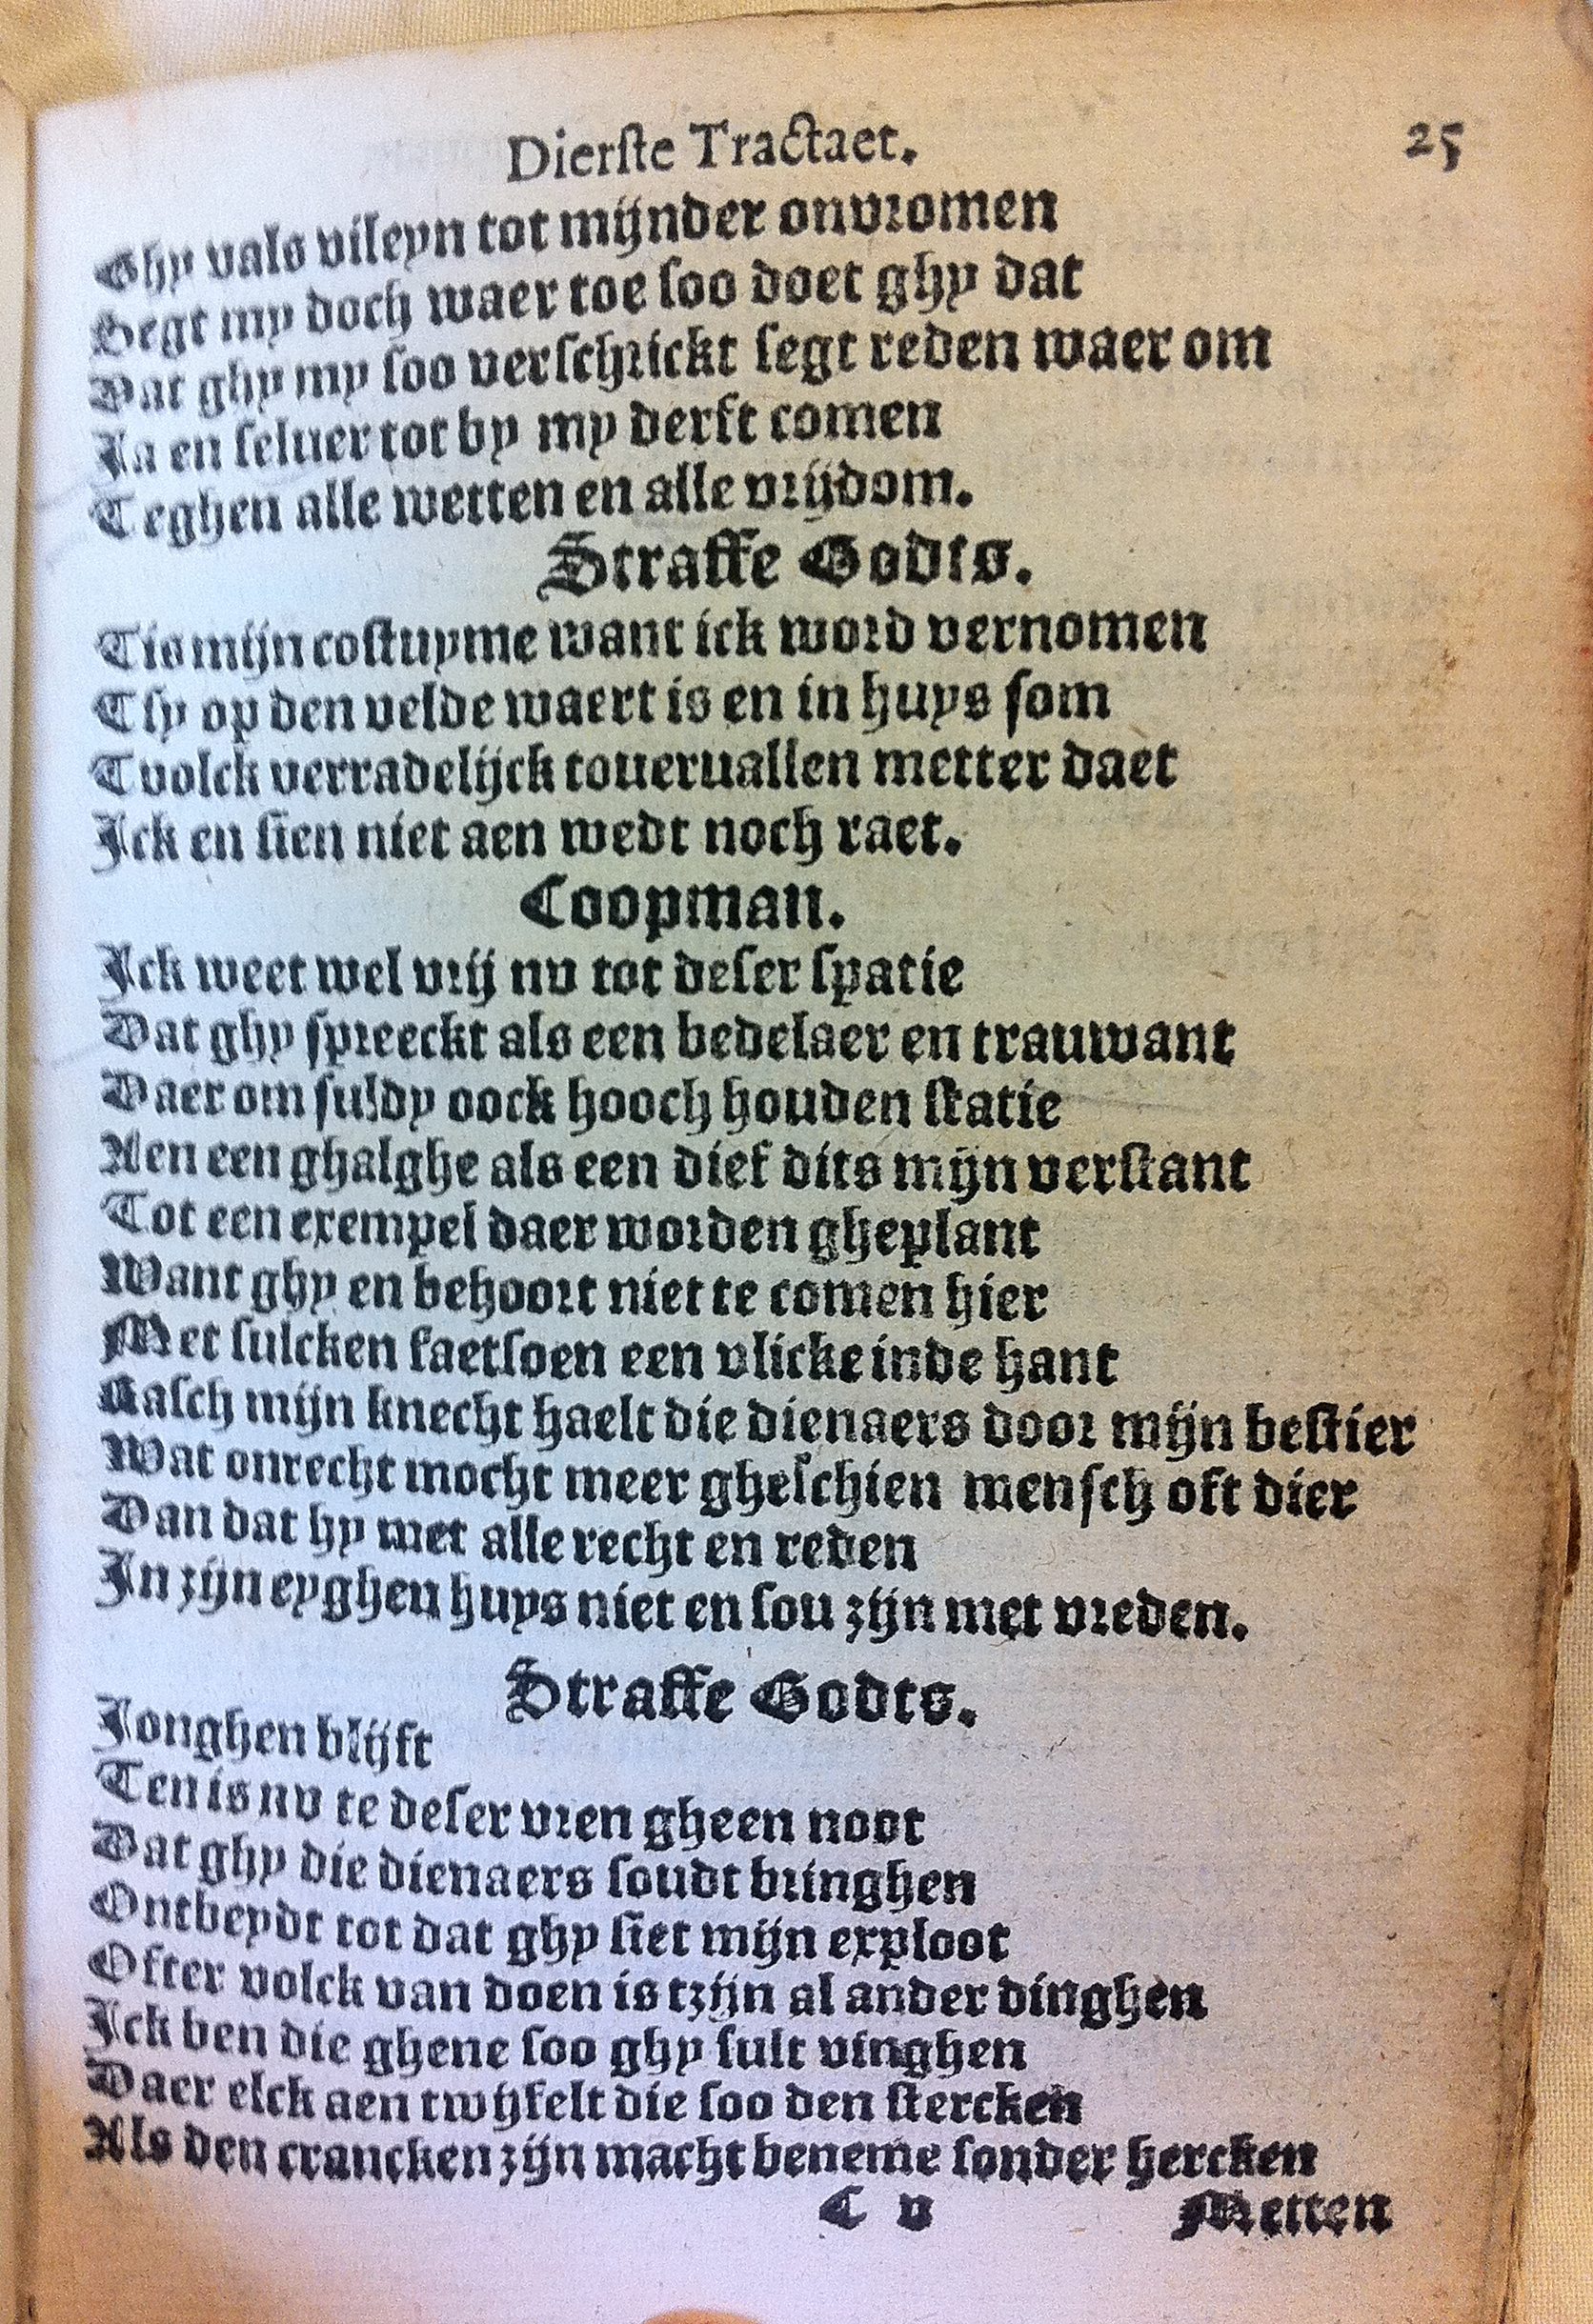 Dierſte Tractaet. 25
Ghy vals vileyn tot mijnder onvromen
Segt my doch waer toe ſoo doet ghy dat
Dat ghy my ſoo verſchrickt ſegt reden waer om
Ja en ſeluer tot by my derft comen
Teghen alle wetten en alle vrijdom.
Straffe Godts.
Tis mijn coſtuyme want ick word vernomen
Tſy op den velde waert is en in huys ſom
Tvolck verradelijck toueruallen metter daet
Ick en ſien niet aen wedt noch raet.
Coopman.
Ick weet wel vrij nv tot deſer ſpatie
Dat ghy ſpreeckt als een bedelaer en trauwant
Daer om ſuldy oock hooch houden ſtatie
Aen een ghalghe als een dief dits mijn verſtant
Tot een exempel daer worden gheplant
Want ghy en behoort niet te comen hier
Met ſulcken faetſoen een vlicke inde hant
Raſch mijn knecht haelt die dienaers door mijn beſtier
Wat onrecht mocht meer gheſchien menſch oft dier
Dan dat hy met alle recht en reden
In zijn eyghen huys niet en ſou zijn met vreden.
Straffe Godts.
Jonghen blijft
Ten is nv te deſer vren gheen noot
Dat ghy die dienaers ſoudt bringhen
Ontbeydt tot dat ghy ſiet mijn exploot
Ofter volck van doen is tzijn al ander dinghen
Ick ben die ghene ſoo ghy ſult vinghen
Daer elck aen twijfelt die ſoo den ſtercken
Als den crancken zijn macht beneme ſonder hercken
C v Metten